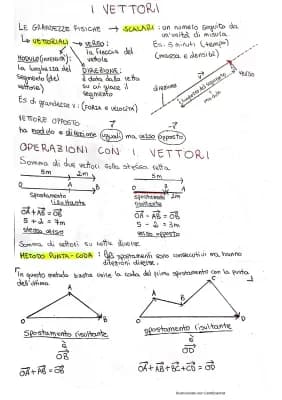 I VETTORI
LE GRANDEZZE FISICHE → SCALARI: un numero seguito da
un'unità di misura
Es: 5 minuti (tempo)
(massa e densità)
↳ VETTORIALI
VERSO:
la freccia del
vettore
MODULO (INTENSITÀ):
la lunghezza del
segmento (del
vettore)
DIREZIONE:
è data dalla retta
su cui giace il
segmento
direzione
verso
lunghezza del segmento
modulo
Es di grandezze v: (FORZA e VELOCITÀ)
VETTORE OPPOSTO
ha modulo e direzione uguali ma verso opposto
OPERAZIONI CON I VETTORI
Somma di due vettori sulla stessa retta
5m 2m
O A B
spostamento
risultante
OA + AB = OB
5 + 2 = 7m
stesso verso
5m
O B A
2m
spostamento
risultante
OA - AB = OB
5 - 2 = 3m
verso opposto
Somma di vettori su rette diverse
METODO PUNTA-CODA: gli spostamenti sono consecutivi ma hanno
direzioni diverse.
In questo metodo basta unire la coda del primo spostamento con la punta
dell'ultima
A
O B
spostamento risultante
è
OB
OA + AB = OB
A B C
O D
spostamento risultante
è
OD
OA + AB + BC + CD = OD
Scansionato con CamScanner